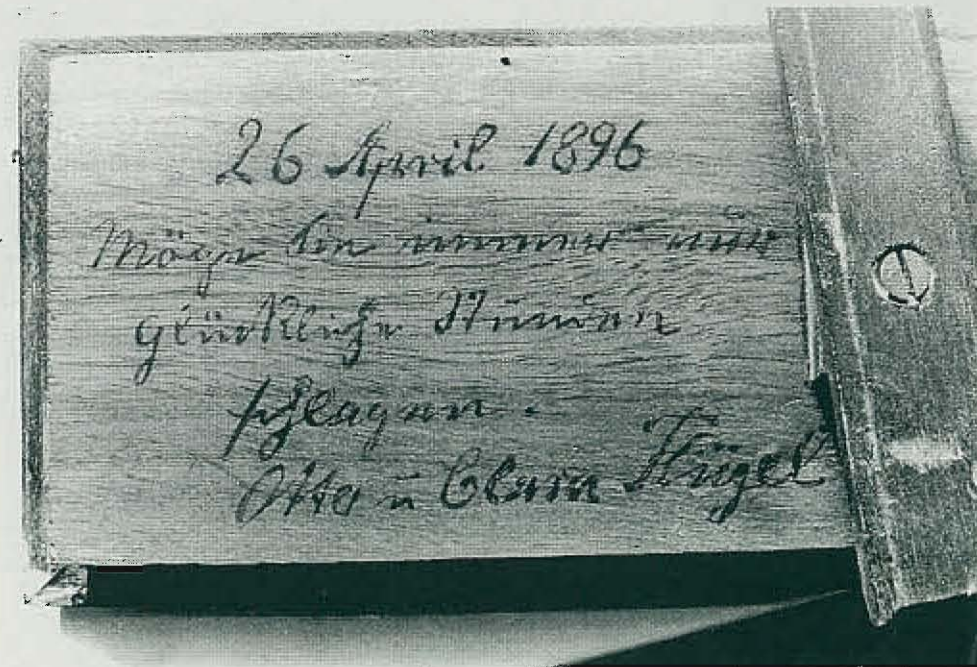 26 April 1896
Möge sie immer nur
glückliche Stunden
schlagen.
Otto u Clara Flügel